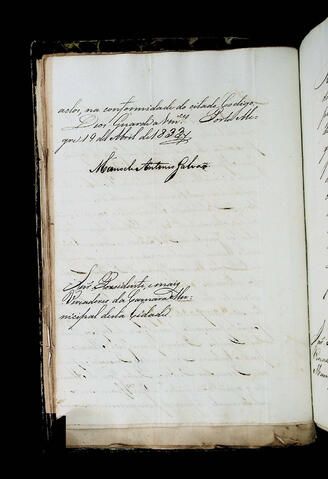 actos, na conformidade do citado Codigo.
Deos Guarde a Vm.ces Porto Ale-
gre 19 de Abril de 1833
Manoel Antonio Galvão
Snr. Presidente, e mais
Vereadores da Camara Mu-
nicipal desta Cidade